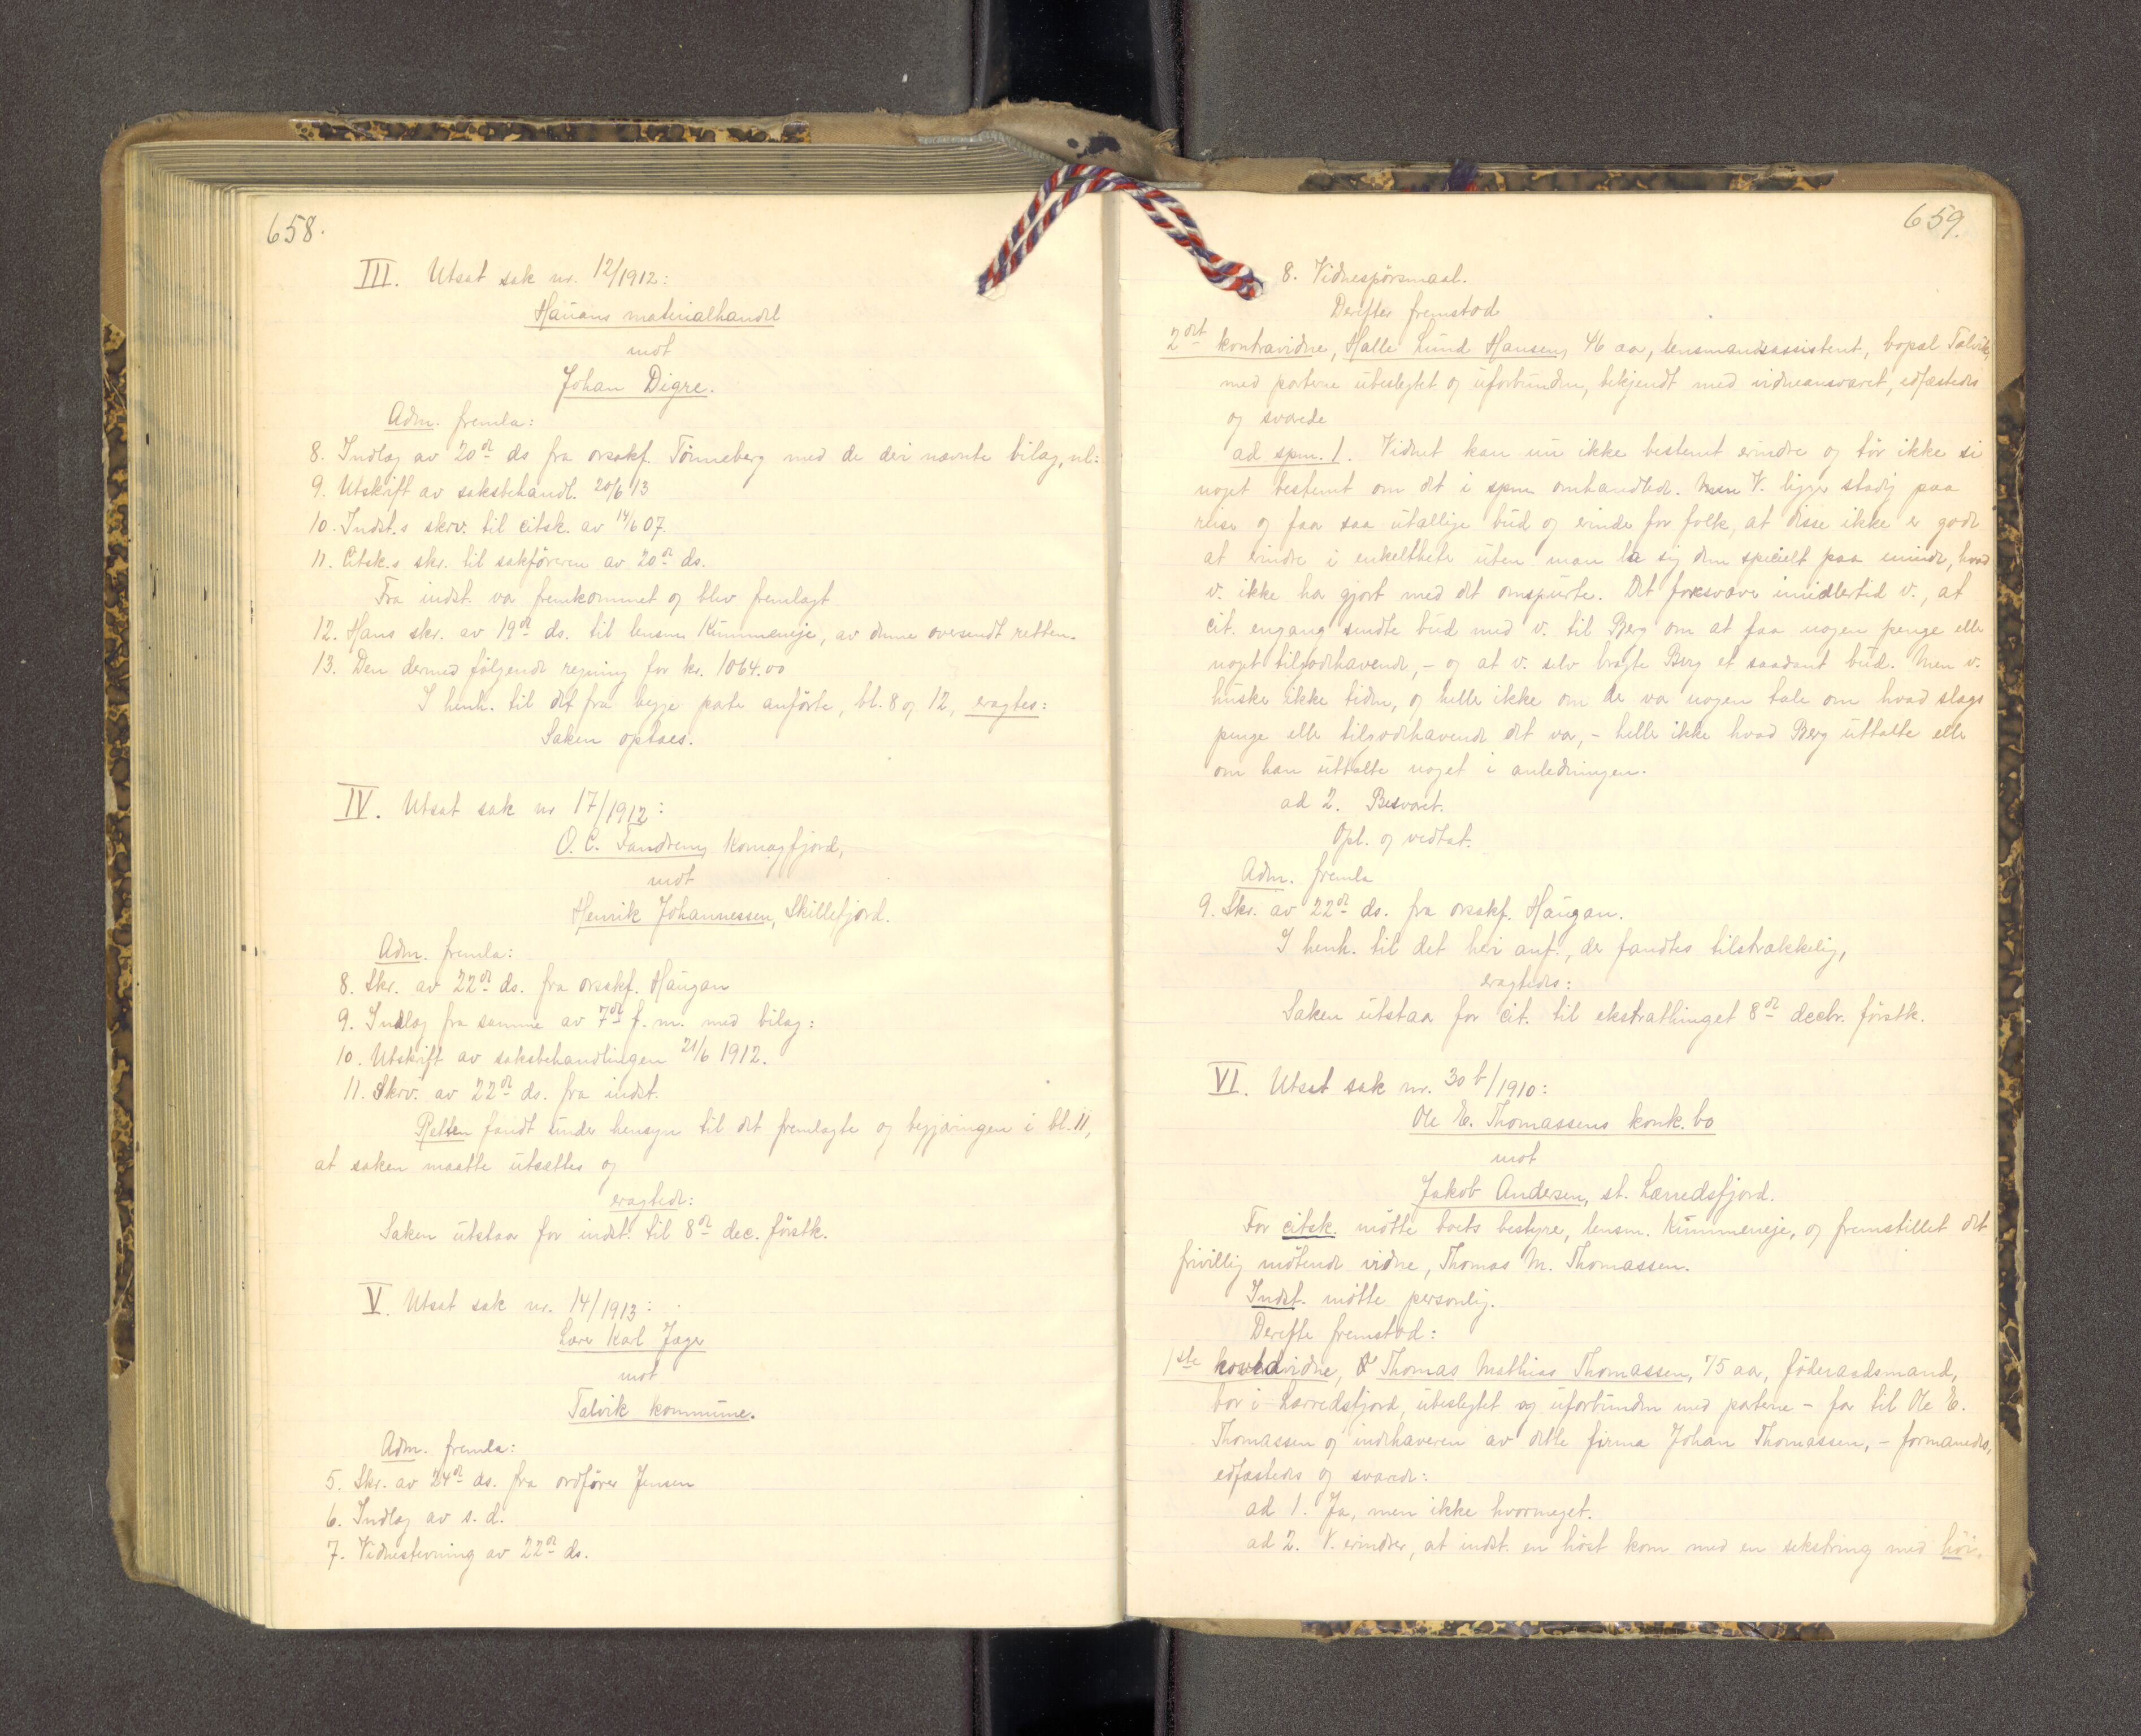 658.
III. Utsat sak nr. 12/1912:
Hauans materialhandel
mot
Johan Digre.
Adm. fremla:
8. Indlæg av 20de ds fra orsakf. Tönneberg med de deri nævnte bilag, nl:
9. Utskrift av saksbehandl. 20/6 13
10. Indst.s skrv. til citsk. av 14/6 07.
11. Citsk.s skr. til sakföreren av 20de ds.
Fra indst. var fremkommet og blev fremlagt
12. Hans skr. av 19de ds. til lensm. Kummeneje, av denne oversendt retten.
13. Den dermed følgende regning for kr. 1064.00
I henh. til det fra begge parter anförte, bl. 8 og 12, eragtes:
Saken optaes.
IV. Utsat sak nr 17/1912:
O. C. Tandreng Komagfjord,
mot
Henrik Johannessen, Skillefjord.
Adm. fremla:
8. Skr. av 22de ds. fra orsakf. Haugan
9. Indlæg fra samme av 7de f. m. med bilag:
10. Utskrift av saksbehandlingen 21/6 1912.
11. Skrv. av 22de ds. fra indst.
Retten fandt under hensyn til det fremlagte og begjæringen i bl. 11,
at saken maatte utsættes og
eragtede:
Saken utstaar for indst. til 8de dec. förstk.
V. Utsat sak nr. 14/1913:
Lærer Karl Jæger
mot
Talvik kommune.
Adm. fremla:
5. Skr. av 24de ds. fra ordförer Jensen
6. Indlæg av s. d.
7. Vidnestevning av 22de ds.
659.
8. Vidnespörsmaal.
Derefter fremstod
2det kontravidne, Halle Lund Hansen, 46 aar, lensmandsassistent, bopæl Talvik,
med parterne ubeslegtet og uforbunden, bekjendt med vidneansvaret, edfæstedes
og svarede
ad spm. 1. Vidnet kan nu ikke bestemt erindre og tör ikke si
noget bestemt om det i spm omhandlede. Men V. ligger stadig paa
reise og faar saa utallige bud og erinder for folk, at disse ikke er gode
at erindre i enkelthete uten man la sig dem specielt paa minde, hvad
v. ikke har gjort med det omspurte. Det foresvaver imidlertid v., at
cit. engang sendte bud med v. til Berg om at faa nogen penge eller
noget tilgodehavende, - og at v. selv bragte Berg et saadant bud. Men v.
husker ikke tiden, og heller ikke om der var nogen tale om hvad slags
penge eller tilgodehavende det var, - heller ikke hvad Berg uttalte eller
om han uttalte noget i anledningen.
ad 2. Besvaret.
Opl. og vedtat.
Adm. fremla
9. Skr. av 22de ds. fra orsakf. Haugan.
I henh. til det heri anf., der fandtes tilstrækkelig,
eragtedes:
Saken utstaar for cit. til ekstrathinget 8de decbr. förstk.
VI. Utsat sak nr. 30 b/1910:
Ole E. Thomassens konk. bo
mot
Jakob Andersen, st. Lerredsfjord.
For citsk. mötte boets bestyrer, lensm. Kummeneje, og fremstillet det
frivillig mötende vidne, Thomas M. Thomassen.
Indst. mötte personlig.
Derefter fremstod:
1ste hovedvidne, Thomas Mathias Thomassen, 75 aar, föderaadsmand,
bor i Lerredsfjord, ubeslegtet og uforbunden med parterne - far til Ole E.
Thomassen og indehaveren av dette firma Johan Thomassen, - formanedes,
edfæstedes og svarede:
ad 1. Ja, men ikke hvormeget.
ad 2. V. erindrer, at indst. en höst kom med en sekstring med höi.